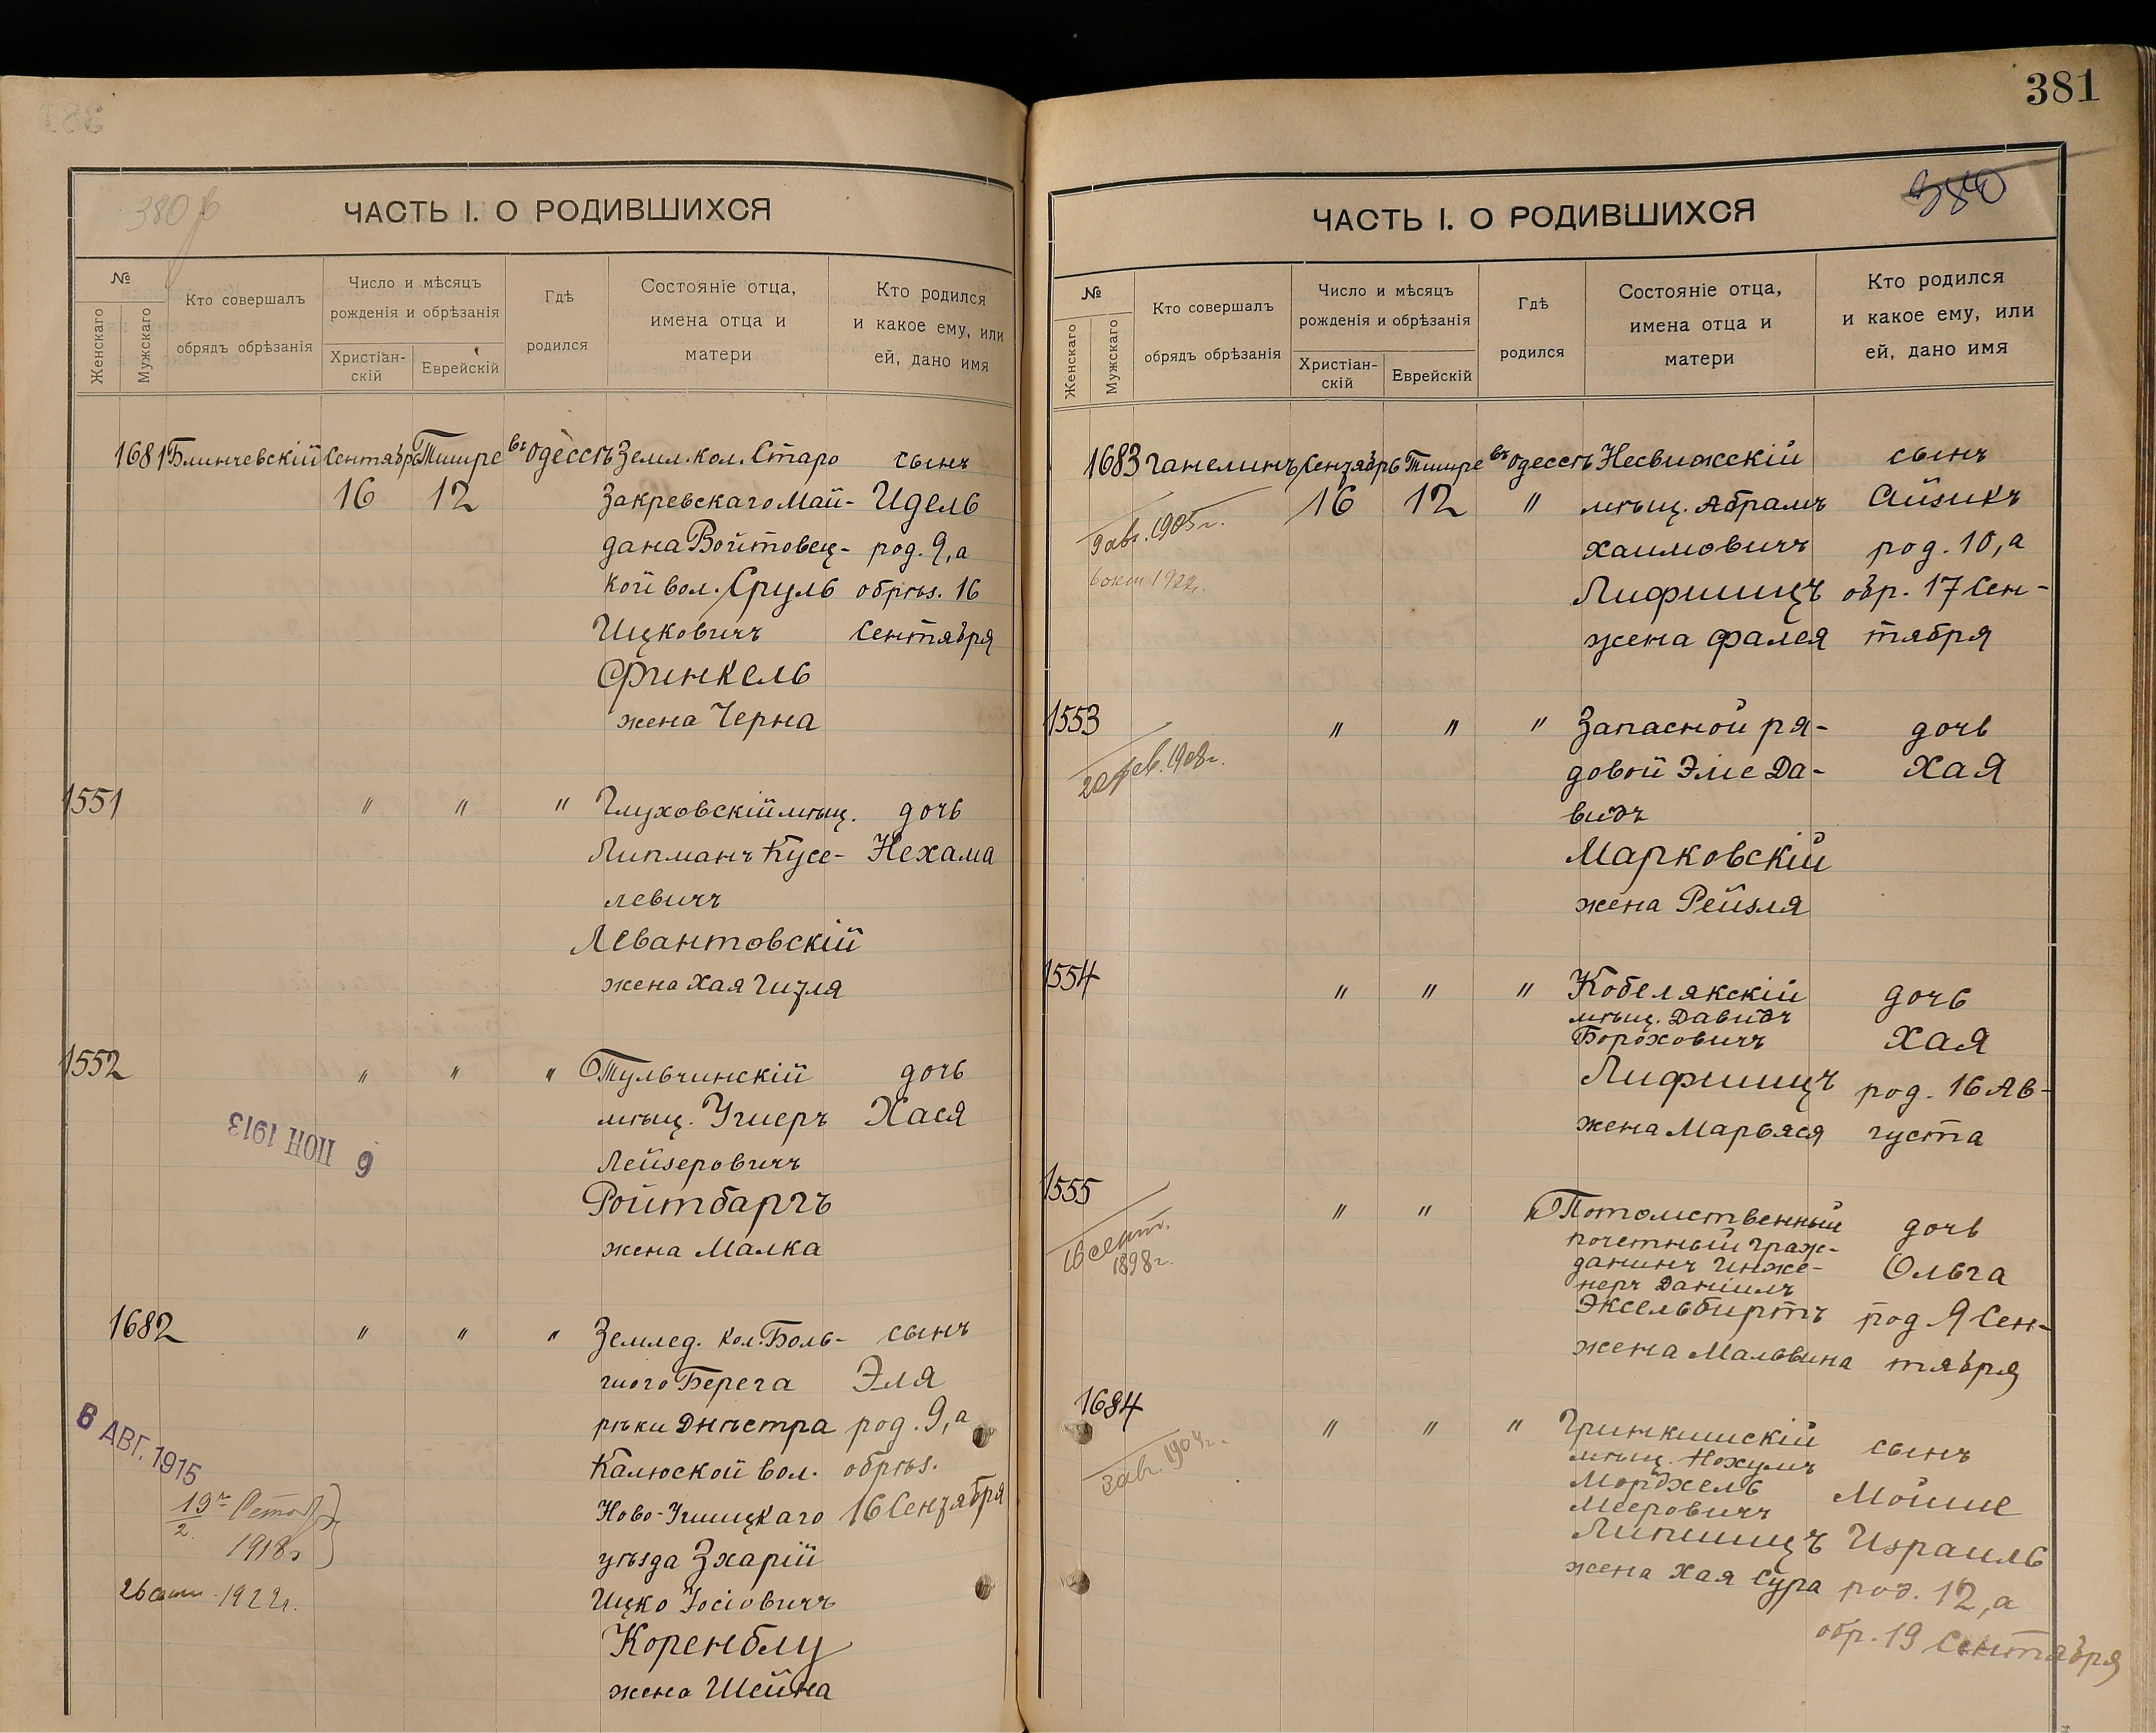 381
380
ЧАСТЬ I. О РОДИВШИХСЯ
№
Женскаго
Мужскаго
Кто совершалъ
обрядъ обрѣзанія
Число и мѣсяцъ
рожденія и обрѣзанія
Христіан-
скій
Еврейскій
Гдѣ
родился
Состояніе отца,
имена отца и
матери
Кто родился
и какое ему, или
ей, дано имя
1681 Блинчевскій Сентябрь Тишре въ Одессѣ Земл. кол. Старо сынъ
16 12 Закревскаго Май- Идель
дана Войтовец- род. 9, а
кой вол. Сруль обрѣз. 16
Ицковичъ Сентября
Финкель
жена Черна
1551 " " " Глуховскій мѣщ. дочь
Липманъ Кусе- Нехама
левичъ
Левантовскій
жена Хая Гизля
1552 " " " Тульчинскій дочь
мѣщ. Ушеръ Хася
Лейзеровичъ
Ройтбаргъ
жена Малка
9 ІЮН 1913
1682 " " " Землед. кол. Боль- сынъ
шого Берега Эля
рѣки Днѣстра род. 9, а
Калюской вол. обрѣз.
Ново-Ушицкаго 16 Сентября
уѣзда Зхарій
Ицко Іосіовичъ
Коренблу
жена Шейна
6 АВГ. 1915
19
2
1918
26 1922г.
ЧАСТЬ I. О РОДИВШИХСЯ
380
№
Женскаго
Мужскаго
Кто совершалъ
обрядъ обрѣзанія
Число и мѣсяцъ
рожденія и обрѣзанія
Христіан-
скій
Еврейскій
Гдѣ
родился
Состояніе отца,
имена отца и
матери
Кто родился
и какое ему, или
ей, дано имя
1683 Ганелинъ Сентябрь Тишре въ Одессѣ Несвижскій сынъ
16 12 " мѣщ. Абрамъ Айзикъ
9 авг. 1905г. Хаимовичъ род. 10, а
6 окт 1922г. Лифшицъ обр. 17 Сен-
жена Фалея тября
1553 " " " Запасной ря- дочь
20 фев. 1908г. довой Эліе Да- Хая
видъ
Марковскій
жена Рейзля
1554 " " " Кобелякскій дочь
мѣщ. Давидъ
Бороховичъ Хая
Лифшицъ род. 16 Ав-
жена Марьяся густа
1555 " " " Потомственный дочь
16 сент. 1898г. почетный граж-
данинъ Инже- Ольга
неръ Даніилъ
Эксельбиртъ род 9 Сен-
жена Мальвина тября
1684 " " " Гринкишскій сынъ
3 авг. 1904г. мѣщ. Нохумъ
Мордхель Мойше
Мееровичъ
Липшицъ Израиль
жена Хая Сура род. 12, а
обр. 19 Сентября